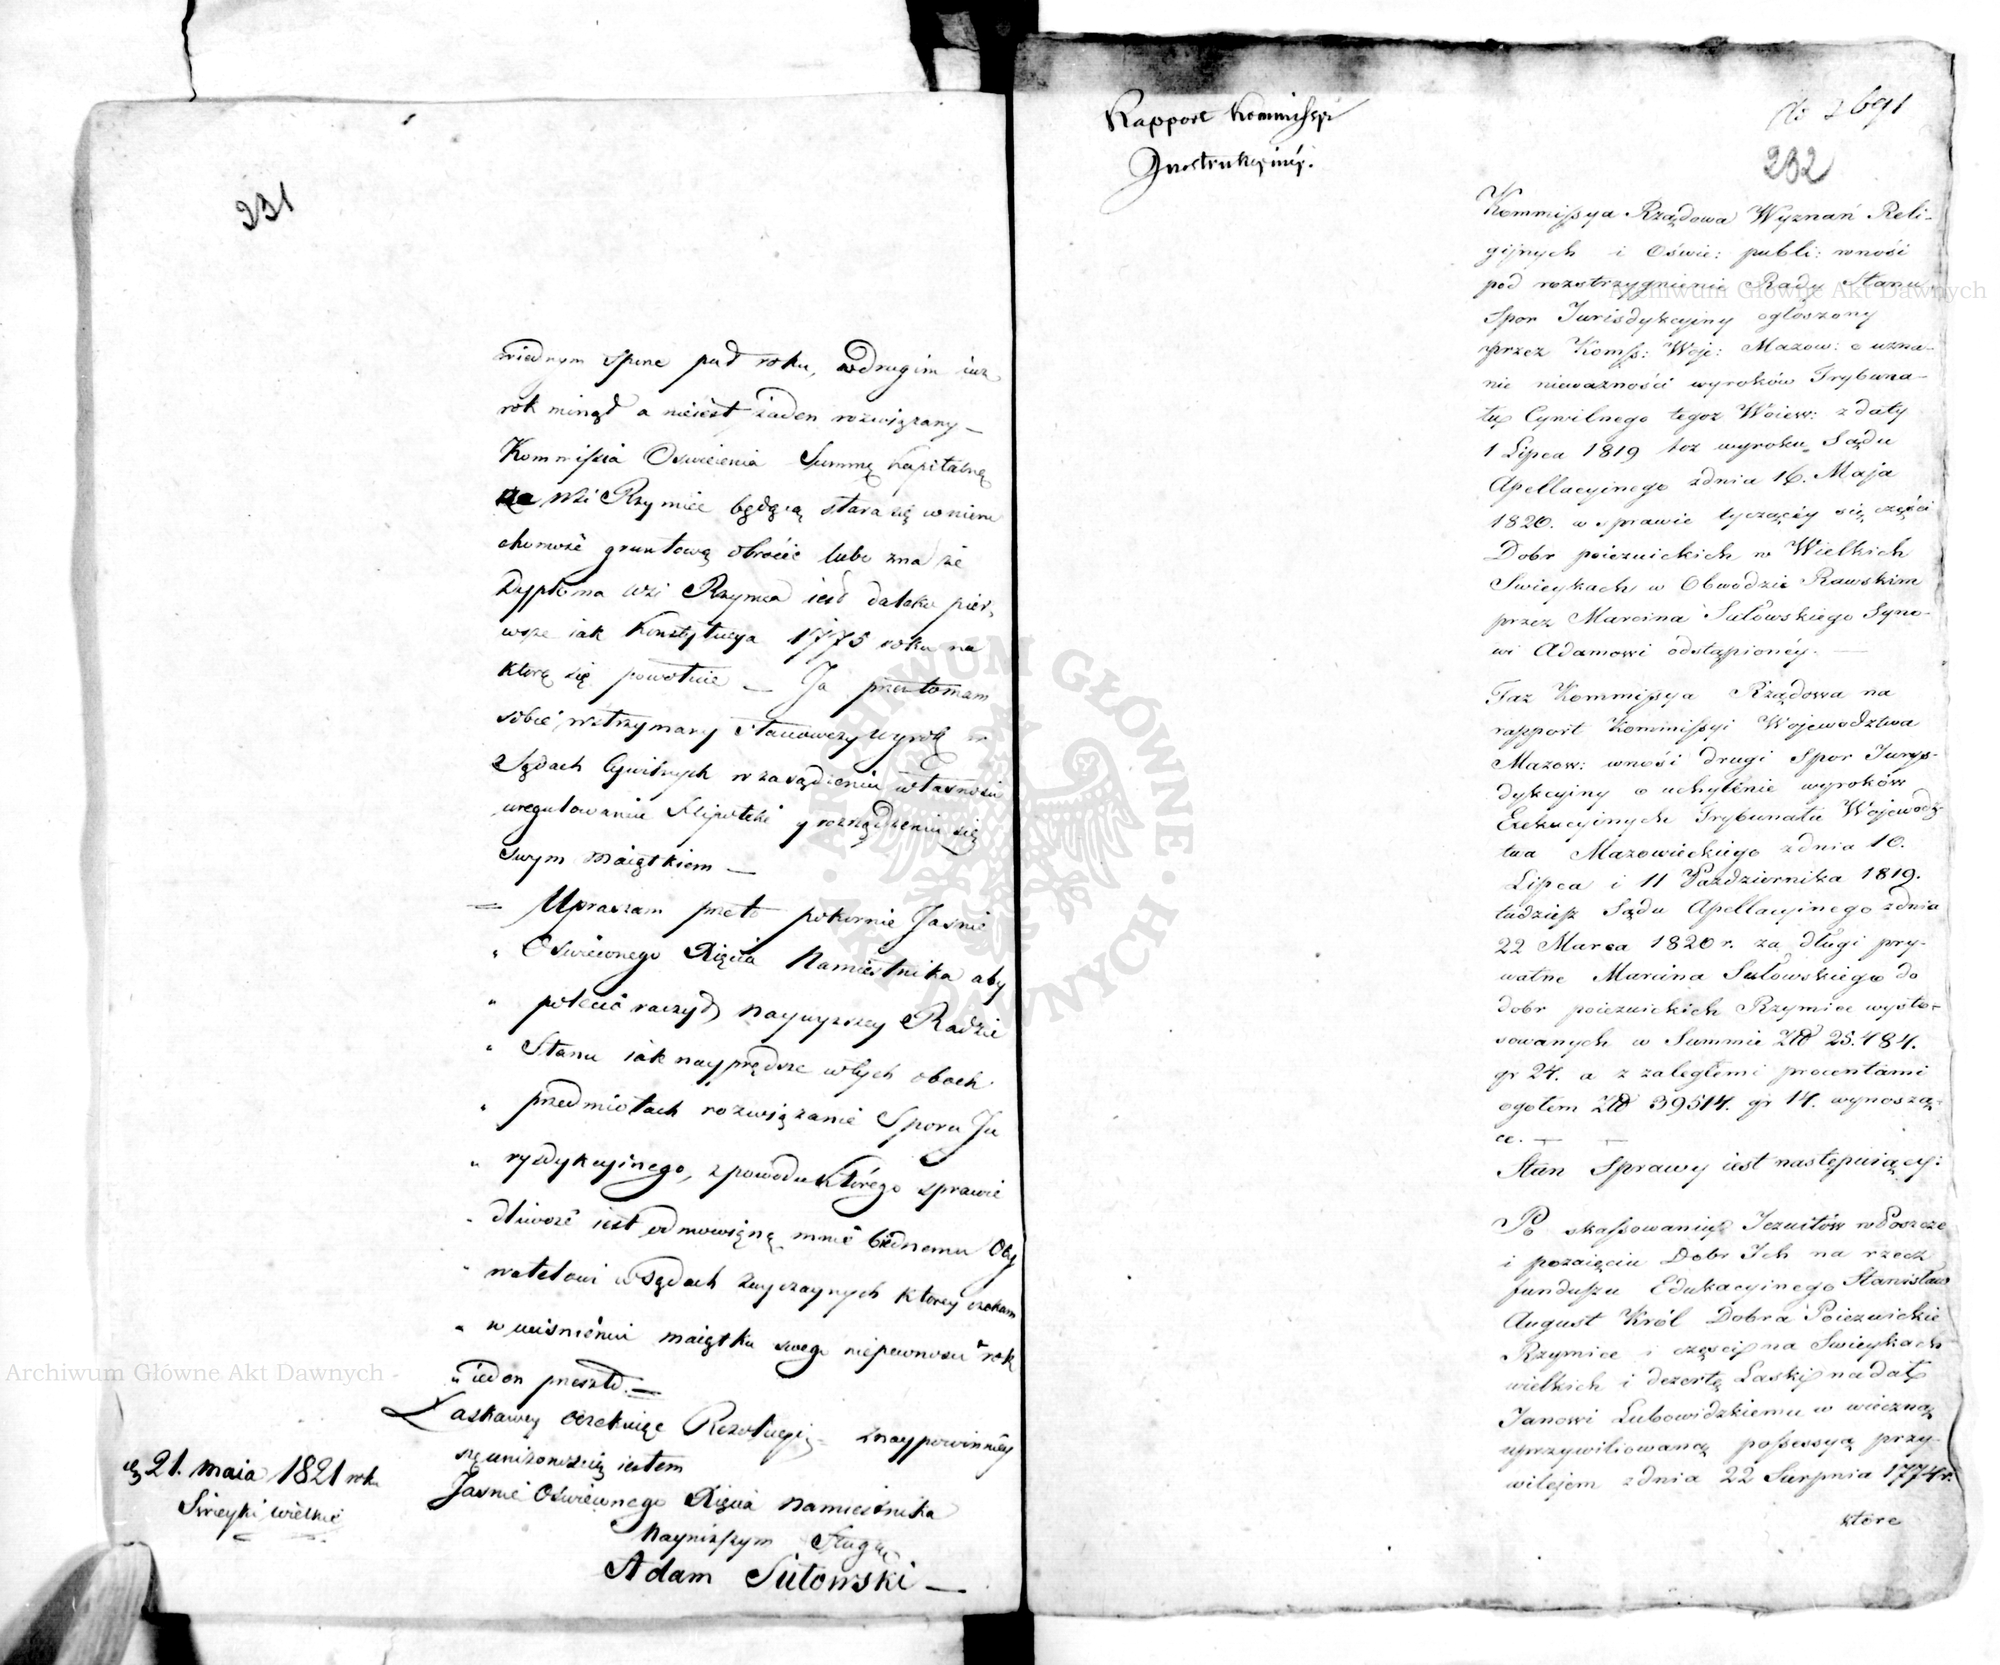 231
wiednym Sporze puł roku, wdrugim iuż
rok minął a nieiest żaden rozwiązany —
Kommissia Oswiecenia Summę Kapitalną
na Wsi Rzymiec będącą stara się w nieru
chomość gruntową obrócić lubo zna że
Dyploma wsi Rzymca iest daleko pier,
wsze iak Konstytucya 1775 roku na
którą się powołuie — Ja
sobie wstrzymany Stanowczy wyrok w
Sądach Cywilnych w zasądzeniu własności
uregulowaniu Hipoteki y rozrządzeniu się
swym maiątkiem —
= Upraszam przeto pokornie Jasnie
" Oswieconego Xięcia Namiestnika aby
" polecić raczył naywyzszey Radzie
" Stanu iak nayprędsze wtych obach
" przedmiotach rozwiązanie Sporu Ju
" rysdykcyinego, zpowodu którego sprawie
" dliwość iest odmowioną mnie biednemu Oby
" watelowi w Sądach zwyczaynych ktorey czekam
" w uciśnieniu maiątku swego niepewności rok
" ieden przeszło —
Łaskawey oczekuiąc Rezolucyi z naypowinniey
szą uniżonoscią iestem
Jasnie Oswieconego Xięcia Namiestnika
Nayniższym Sługą
Adam Sułowski —
21. maia 1821 roku
Swieyki wielkie
Rapport Kommissyi
Instrukcyiney.
No 2691
232
Kommissya Rządowa Wyznań Reli-
gijnych i Oświe: publi: wnosi
pod rozstrzygnienie Rady Stanu
Spor Jurisdykcyiny ogłoszony
przez Komss: Woje: Mazow: o uzna-
nie nieważności wyroków Trybuna-
łu Cywilnego tegoż Woiew: z daty
1 Lipca 1819 toż wyroku Sądu
Apellacyinego zdnia 16. Maja
1820. w sprawie tyczącéy się części
Dobr poiezuickich w Wielkich
Swieykach w Obwodzie Rawskim
przez Marcina Sułowskiego Syno-
wi Adamowi odstąpionéy. —
Taż Kommissya Rządowa na
rapport Kommissyi Wojewodztwa
Mazow: wnosi drugi Spor Jurys-
dykcyiny o uchylenie wyroków
Exekucyinych Trybunału Wojewodz-
twa Mazowieckiego zdnia 10.
Lipca i 11 Października 1819.
tudziesz Sądu Apellacyinego zdnia
22 Marca 1820 r. za długi pry-
watne Marcina Sułowskiego do
dobr poiezuickich Rzymiec wysto-
sowanych w Summie Złł 25.484.
gr 24. a z zaległemi procentami
ogołem Złł 39514. gr 14. wynoszą-
ce. —
Stan Sprawy iest następuiący:
Po skassowaniu Jezuitów w Polszcze
i pozaięciu Dobr Ich na rzecz
funduszu Edukacyinego Stanisław
August Król Dobra Poiezuickie
Rzymiec i części na Swieykach
wielkich i dezertę Laski nadał
Janowi Lubowidzkiemu w wieczną
uprzywiliowaną possessyą przy-
wilejem zdnia 22 Sierpnia 1774 r.
które
Archiwum Główne Akt Dawnych
Archiwum Główne Akt Dawnych
ARCHIWUM GŁÓWNE AKT DAWNYCH